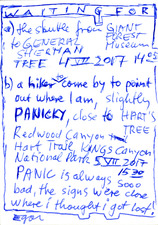 WAITING FOR
a) the shuttle from GIANT
to GENERAL FOREST
SHERMAN Museum
TREE 4 VII 2017 14 05
b) a hiker come by to point
out where I am, slightly
PANICKY, close to HART'S
TREE
Redwood Canyon
Hart Trail, KINGS CANYON
National Park 5 VII 2017
15 30
PANIC is always sooo
bad, the signs were close
where i thought i got lost!
Egon